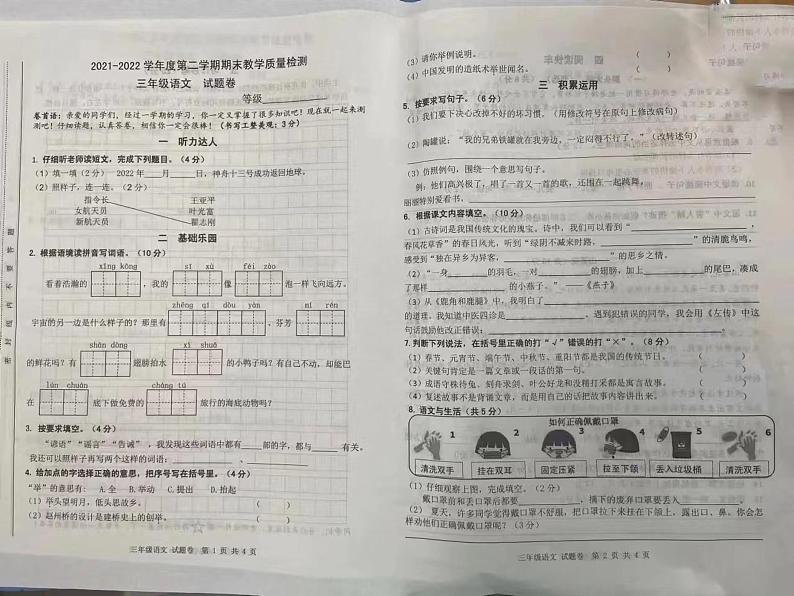 2021-2022 学年度第二学期期末教学质量检测
三年级语文 试题卷
等级
卷首语：亲爱的同学们，经过一学期的学习，你一定又掌握了很多知识吧！现在就一起来测
测吧！仔细读题，认真答卷，相信你一定会很棒！（书写工整美观：3分）
一 听力达人
1. 仔细听老师读短文，完成下列题目。（4分）
（1）填一填（2分） 2022年____月____日，神舟十三号成功返回地球，
（2）照样子，连一连。（2分）
指令长 王亚平
女航天员 叶光富
新航天员 翟志刚
二 基础乐园
2. 根据语境读拼音写词语。（10分）
xīng kōng sī xù féi zào
看着浩瀚的 ，我的 像 泡一样飞向远方。
zhēng qì dòu yàn mí rén
宇宙的另一边是什么样子的？那里有 、 、芬芳
的鲜花吗？有 shān dòng 翅膀拍水 的小鸭子吗？有自由自在、却能巴
lún chuán chāo zhòng
在 底下做免费的 旅行的海底动物吗？
3. 按要求填空。（4分）
“谚语”“谣言”“告诫”，我发现这些词语中都有____部的字，都与____有关。
我还可以照样子再写两个这样的词语：
4. 给加点的字选择正确的意思，把序号写在括号里。（4分）
“举”的意思有： A.全 B.举动 C.提出 D.抬起
（1）举头望明月，低头思故乡。 （ ）
（2）赵州桥的设计是建桥史上的创举。 （ ）
三年级语文 试题卷 第 1 页 共 4 页
（3）请你举例说明。 （ ）
（4）中国发明的造纸术举世闻名。 （ ）
三 积累运用
5. 按要求写句子。（6分）
（1）我们要下决心改掉不好的坏习惯。（用修改符号在原句上修改病句）
（2）陶罐说：“我的兄弟铁罐就在我旁边，一定闷得不行了。”（改转述句）
（3）仿照例句，围绕一个意思写句子。
例：他们高兴极了，唱了一首又一首的歌，还围在一起跳舞。
丽丽特别爱看书。
6. 根据课文内容填空。（10分）
（1）古诗词是我国传统文化的瑰宝。诗中，我们可以看到“____，
春风花草香”的春日风光，听到“绿阴不减来时路，____”的清脆鸟鸣，
感受到“独在异乡为异客，____”的思乡之情。
（2）“一身____的羽毛，一对____的翅膀，加上____的尾巴，凑成
了那样____的小燕子。”——《燕子》
（3）从《鹿角和鹿腿》中，我明白了
的道理。我知道中医四诊是____。遇到犯错误的同学，我会用《左传》中这
句话鼓励他改正错误：
7. 判断下列说法，在括号里正确的打“√”错误的打“×”。（8分）
（1）春节、元宵节、端午节、中秋节、重阳节都是我国的传统节日。 （ ）
（2）关键句肯定是一篇文章或一段话的第一句。 （ ）
（3）成语守株待兔、刻舟求剑、叶公好龙和没精打采都是寓言故事。 （ ）
（4）复述故事不是背诵文章，而是用自己的话把故事内容讲出来。 （ ）
8. 语文与生活（共5分）
如何正确佩戴口罩
1 2 3 4 5 6
清洗双手 挂在双耳 固定压紧 拉至下颌 丢入垃圾桶 清洗双手
（1）仔细观察上图，完成填空。（2分）
戴口罩前和丢口罩后都要____，摘下的废弃口罩要____。
（2）夏天，许多同学觉得戴口罩不舒服，把口罩往下拉来下来，露出口、鼻。你会怎
样劝他们正确佩戴口罩呢？（3分）
三年级语文 试题卷 第 2 页 共 4 页